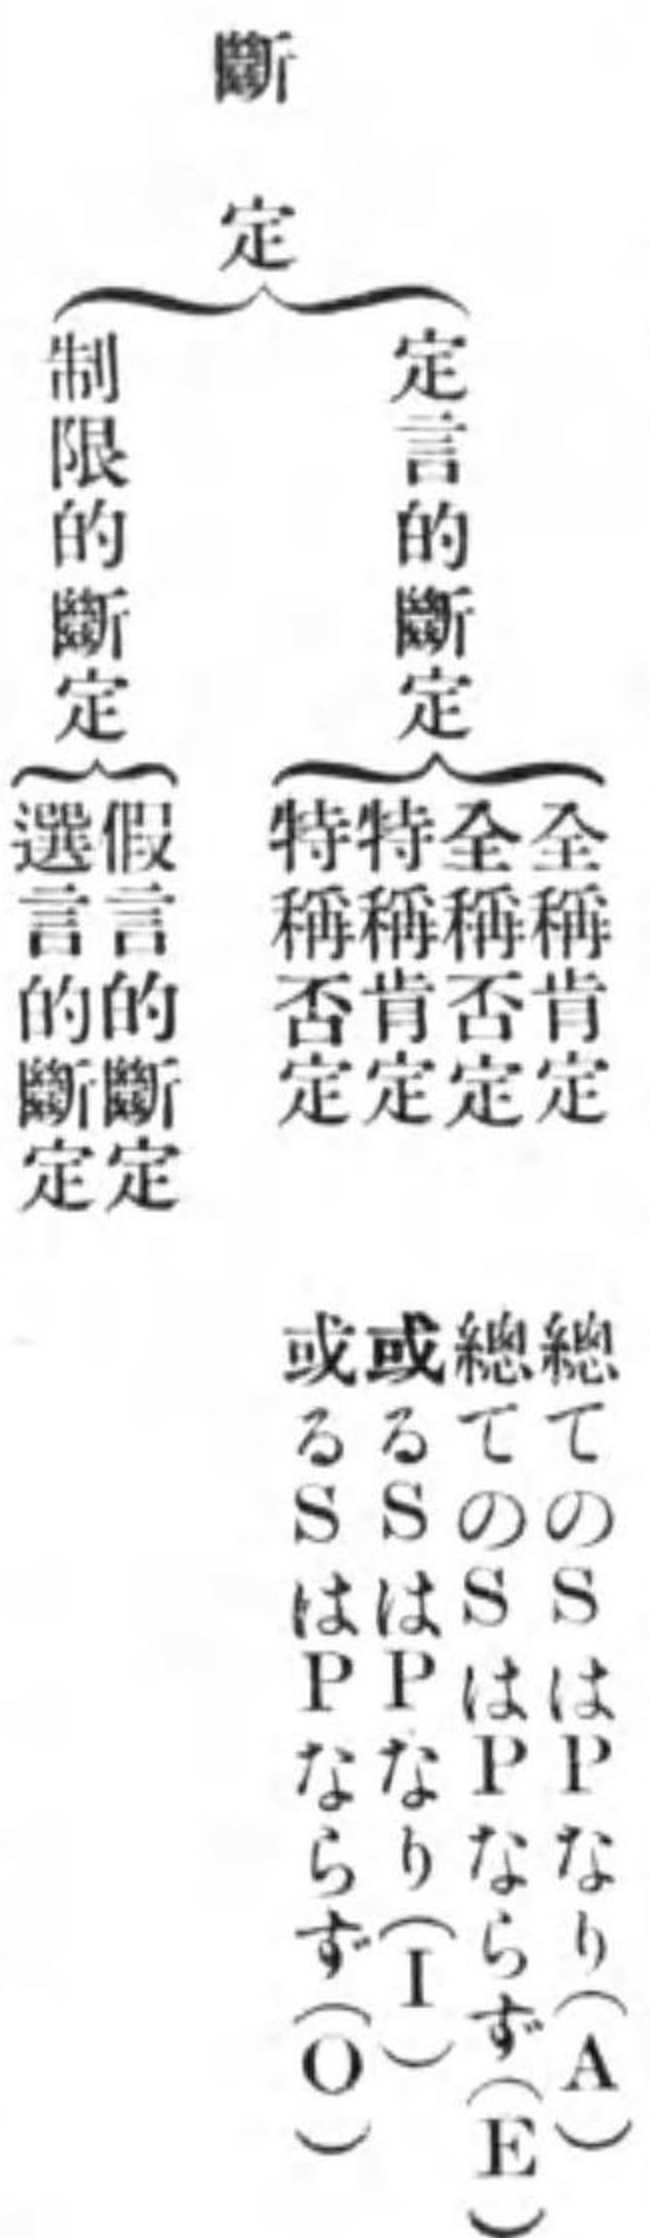 斷定
定言的斷定
全稱肯定 總てのSはPなり(A)
全稱否定 總てのSはPならず(E)
特稱肯定 或るSはPなり(I)
特稱否定 或るSはPならず(O)
制限的斷定
假言的斷定
選言的斷定